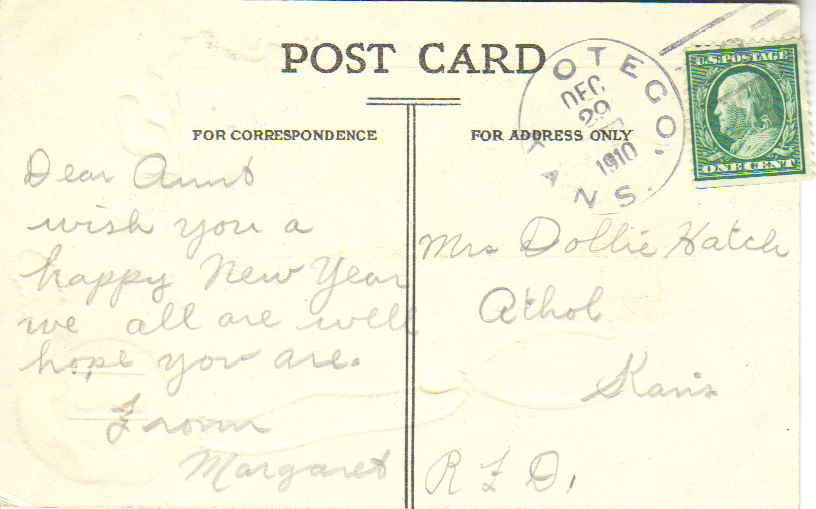 POST CARD
OTEGO, KANS.
DEC
29
1910
U.S. POSTAGE
ONE CENT
FOR CORRESPONDENCE
Dear Aunt
wish you a
happy New Year
we all are well
hope you are.
From
Margaret
FOR ADDRESS ONLY
Mrs Dollie Hatch
Athol
Kans
R F D,